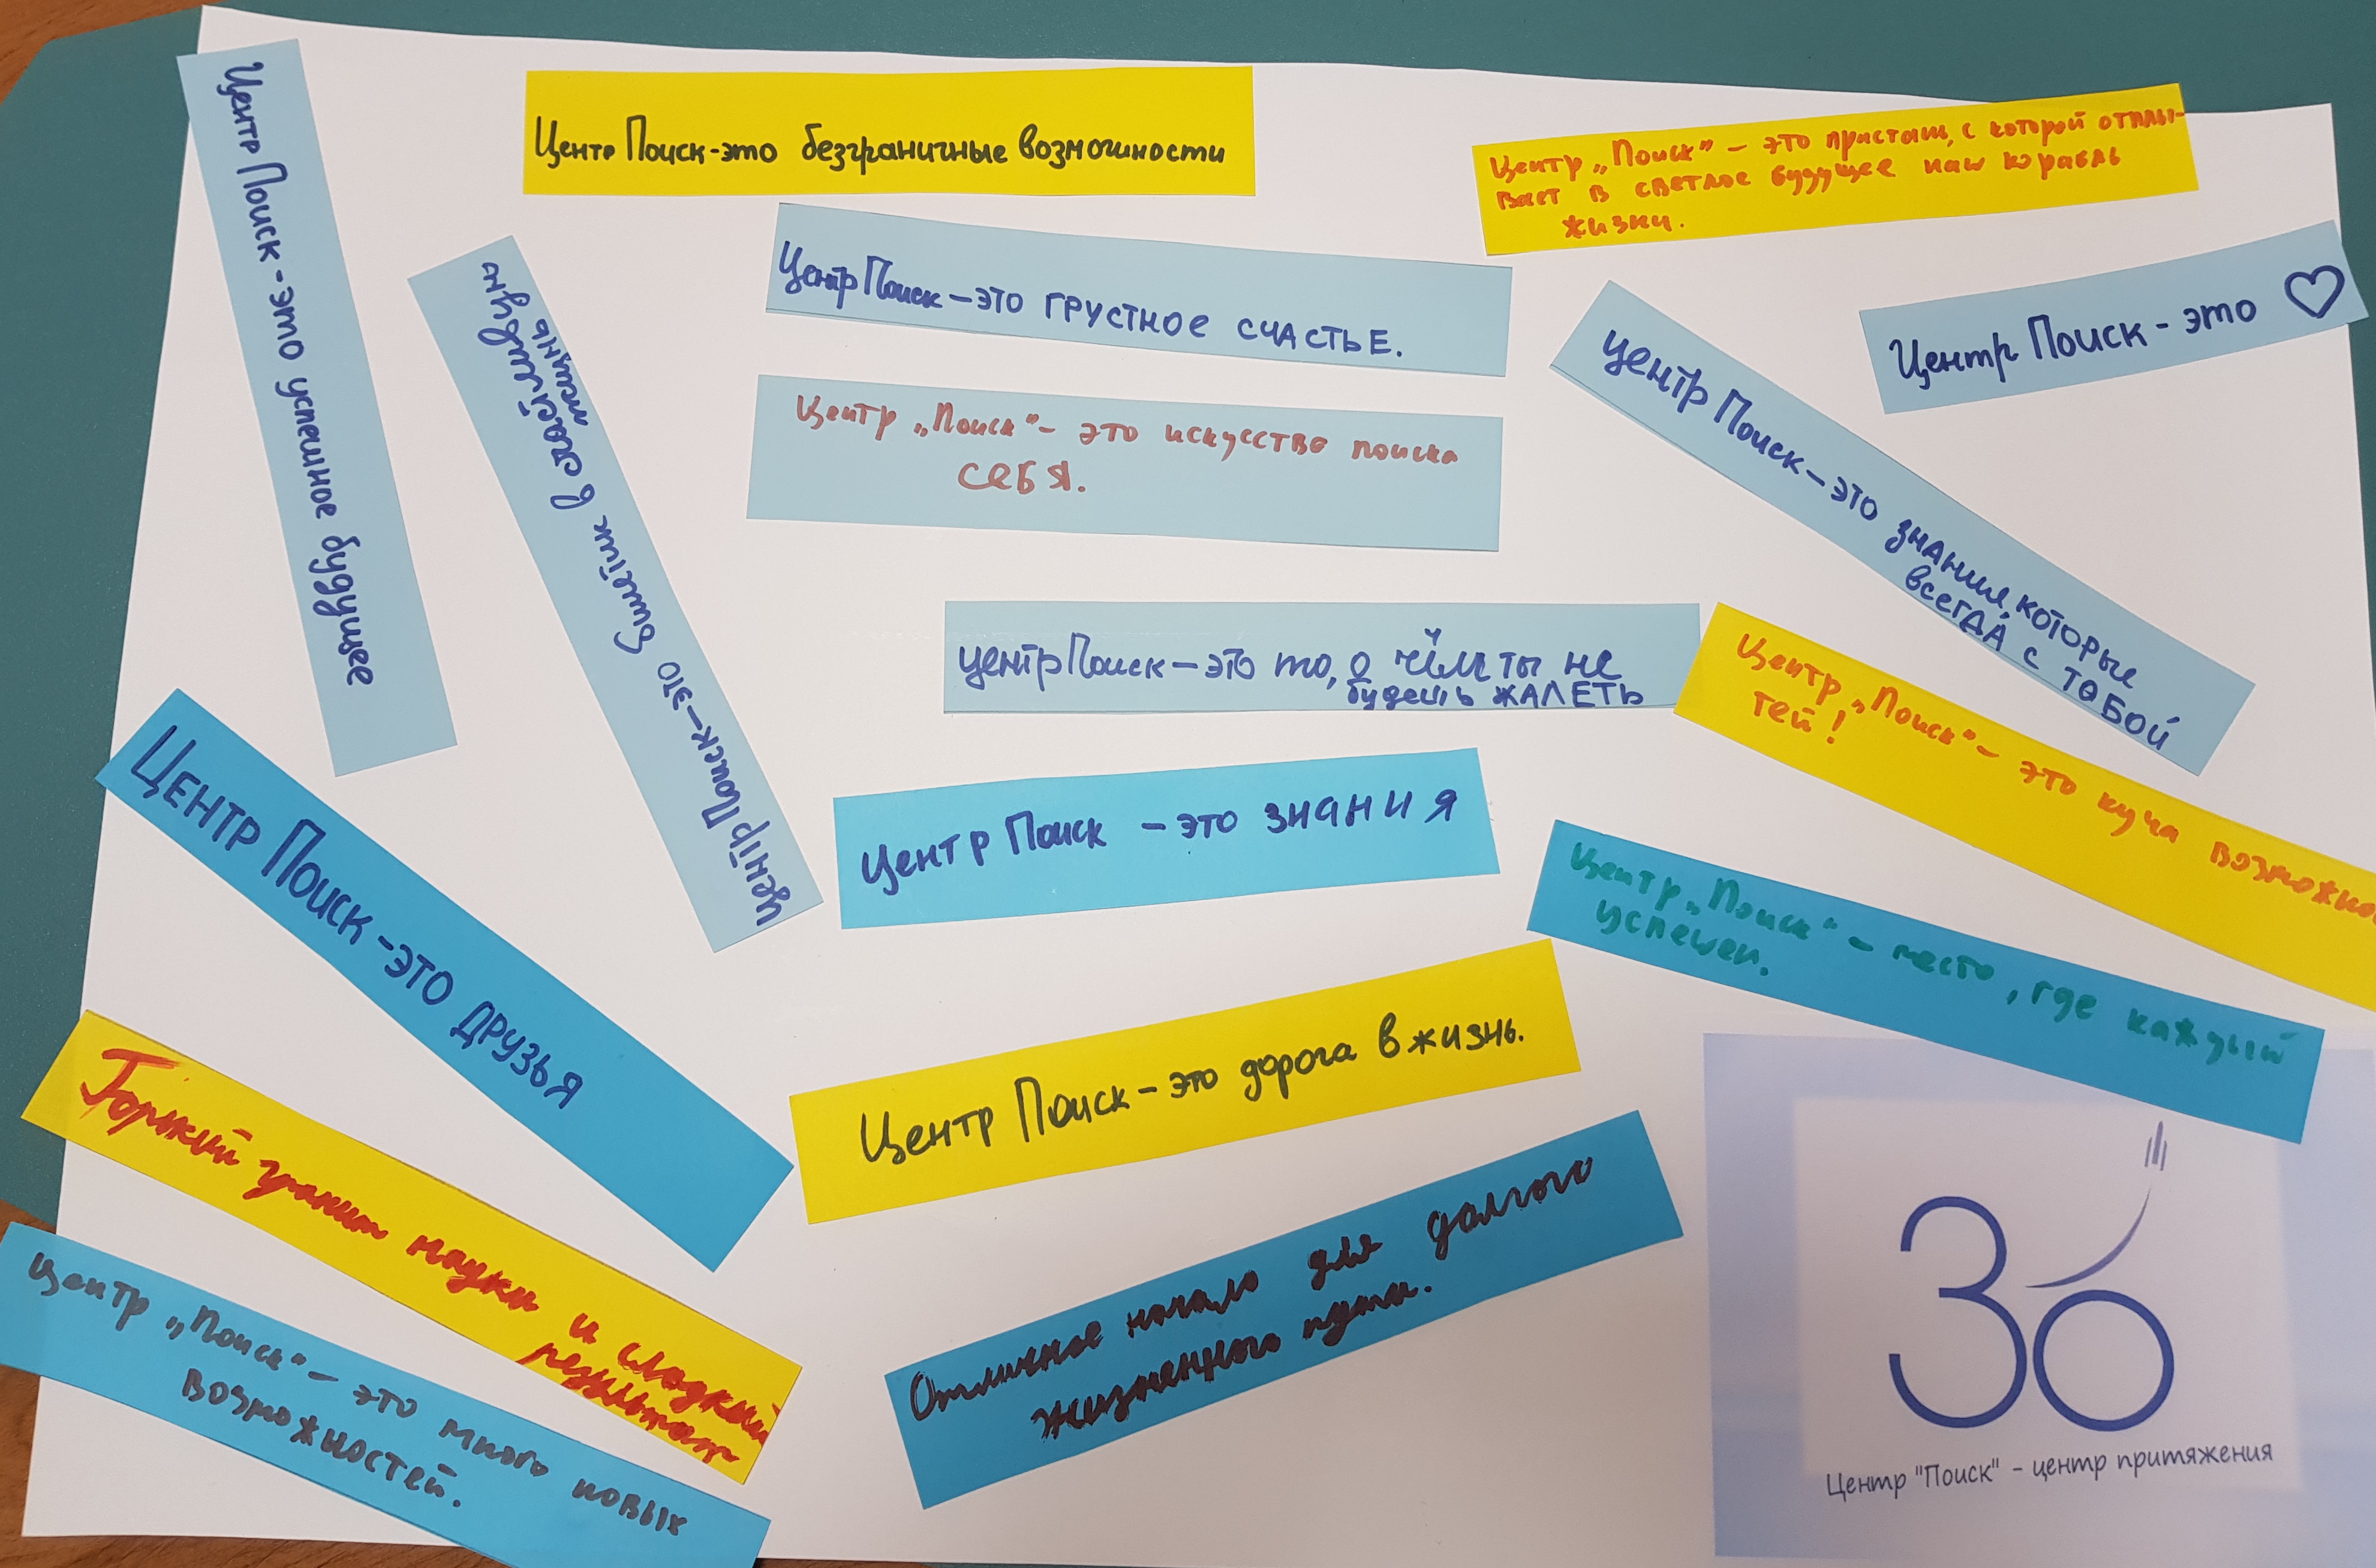 Центр Поиск-это успешное будущее
Центр Поиск-это безграничные возможности
Центр „Поиск" – это пристань, с которой отплы-
вает в светлое будущее наш корабль
жизни.
Центр Поиск – это билетик в счастливую
жизнь
Центр Поиск – это ГРУСТНОЕ СЧАСТЬЕ.
Центр Поиск - это ♡
Центр „Поиск" – это искусство поиска
себя.
центр Поиск – это знания, которые
всегда с тобой
центр Поиск – это то, о чём ты не
будешь ЖАЛЕТЬ
Центр „Поиск" – это куча возможно
тей!
Центр Поиск – это знания
Центр „Поиск" – место, где каждый
успешен.
Центр Поиск -это друзья
Центр Поиск – это дорога в жизнь.
Горький гранит науки и сладкий
результат
Отличное начало для долгого
жизненного пути.
Центр „Поиск" – это много новых
возможностей.
30
Центр "Поиск" - центр притяжения